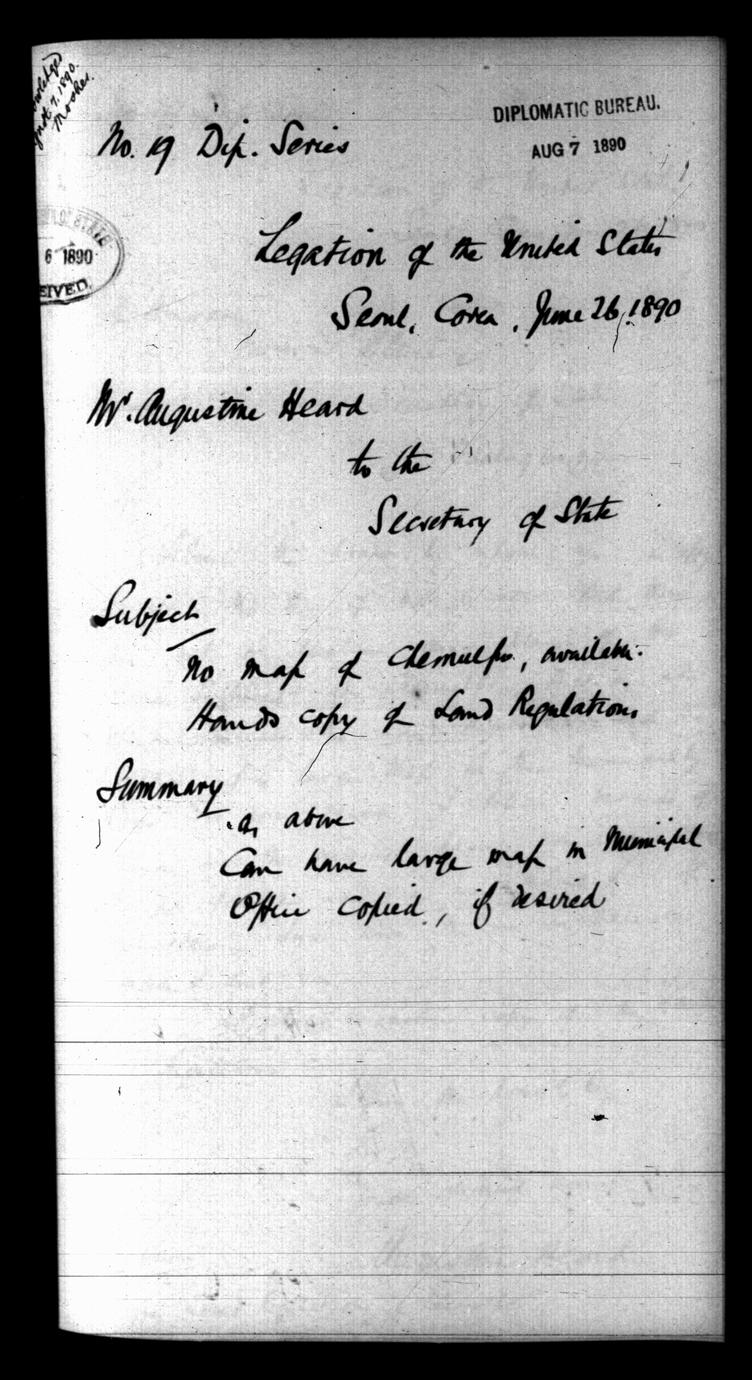 7, 1890.
No. 19 Dip. Series
DIPLOMATIC BUREAU.
AUG 7 1890
6 1890
EIVED.
Legation of the United States
Seoul, Corea, June 26, 1890
Mr. Augustine Heard
to the
Secretary of State
Subject
No map of Chemulpo, availabe.
Hands copy of Land Regulations
Summary
as above
Can have large map in Municipal
Office copied, if desired